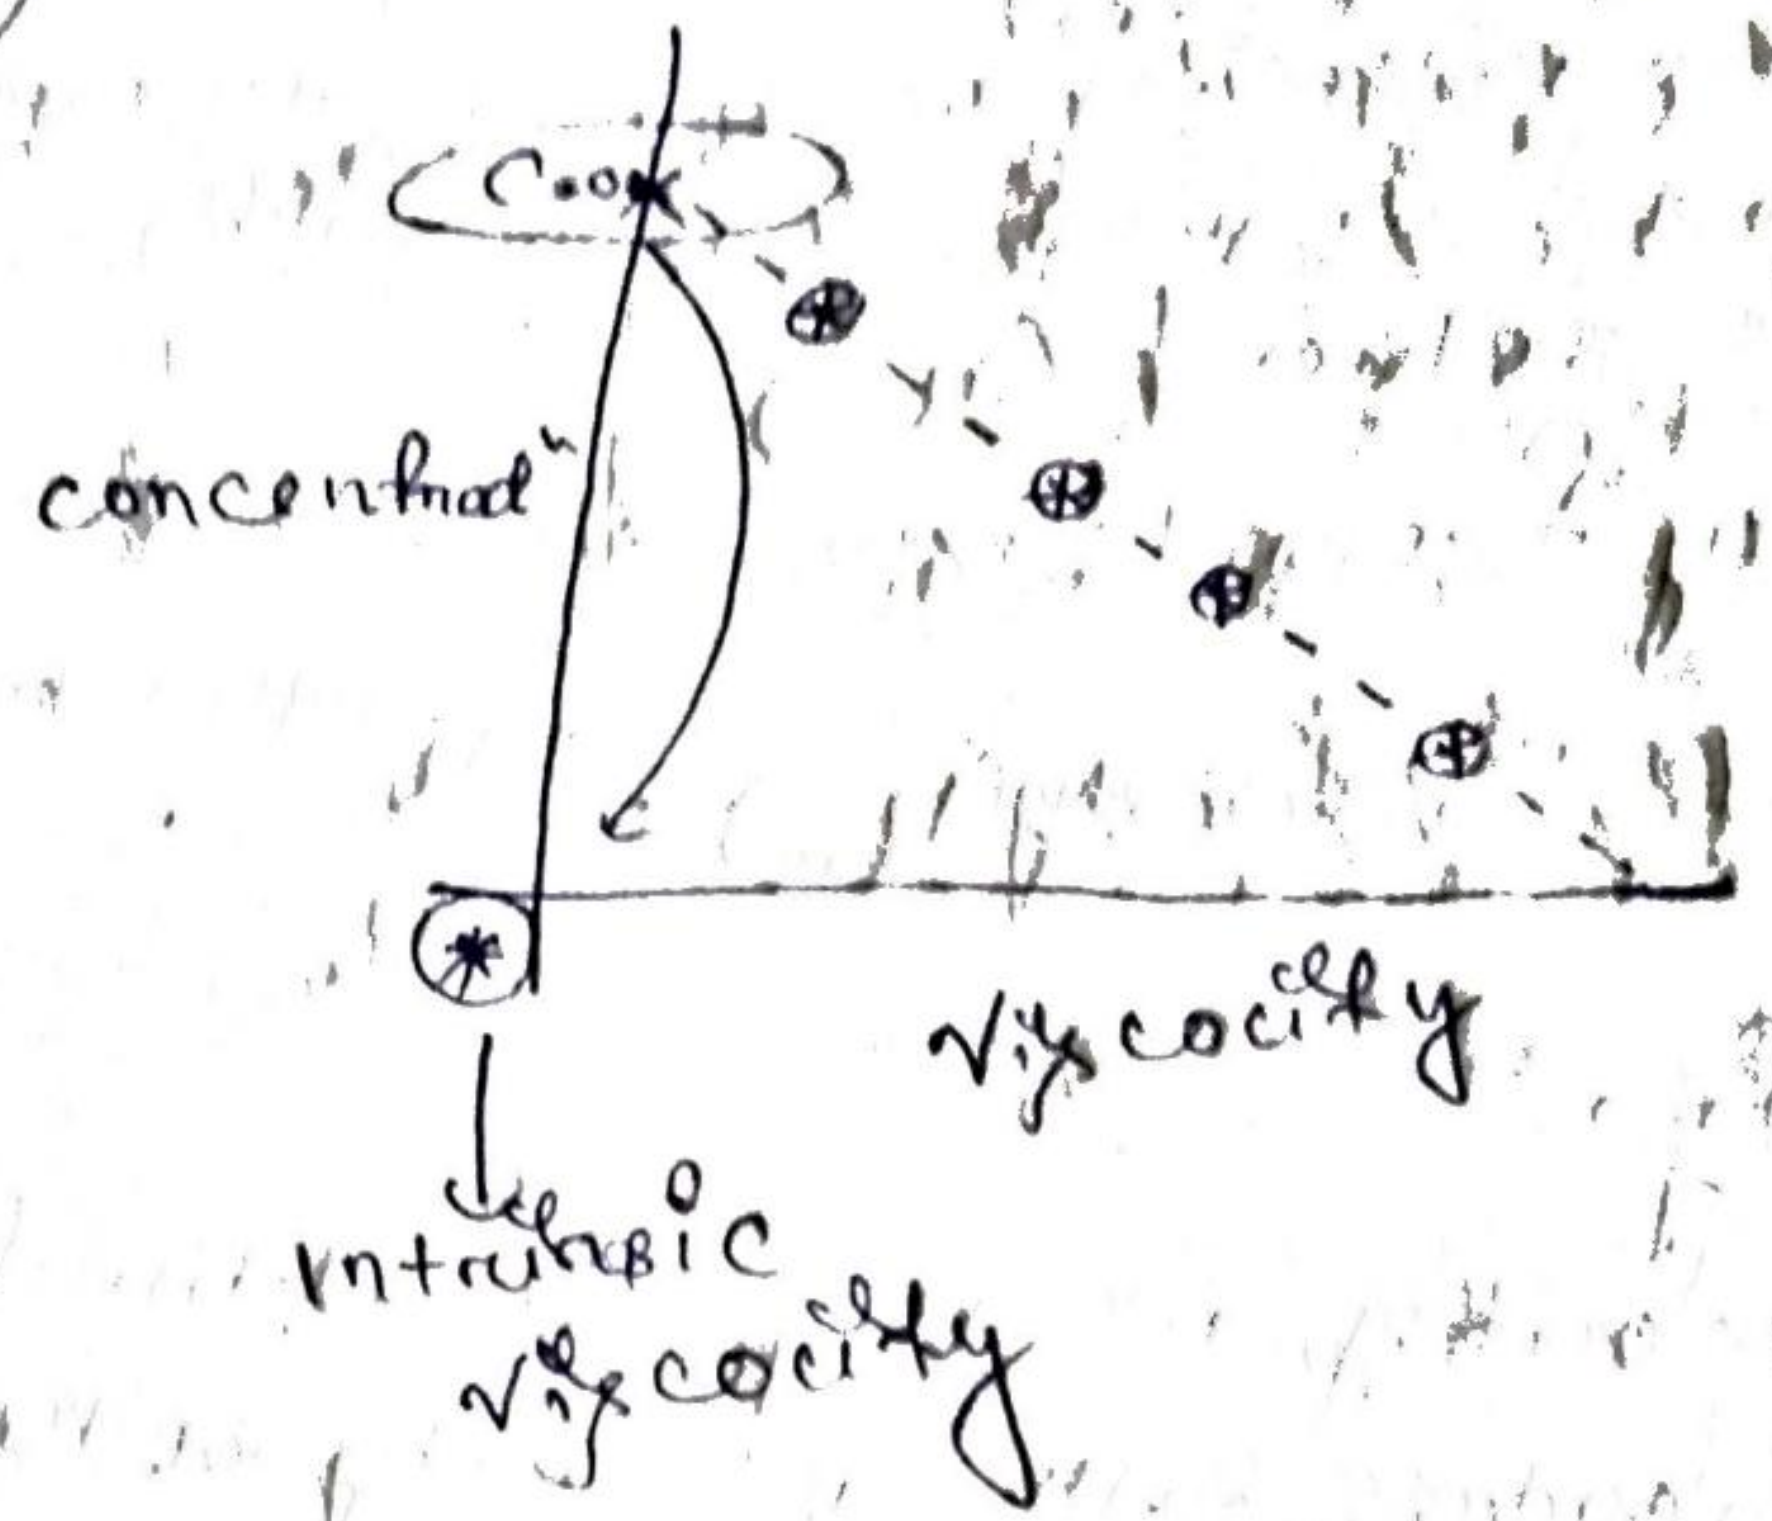 concentratⁿ
viscocity
intrinsic
viscocity